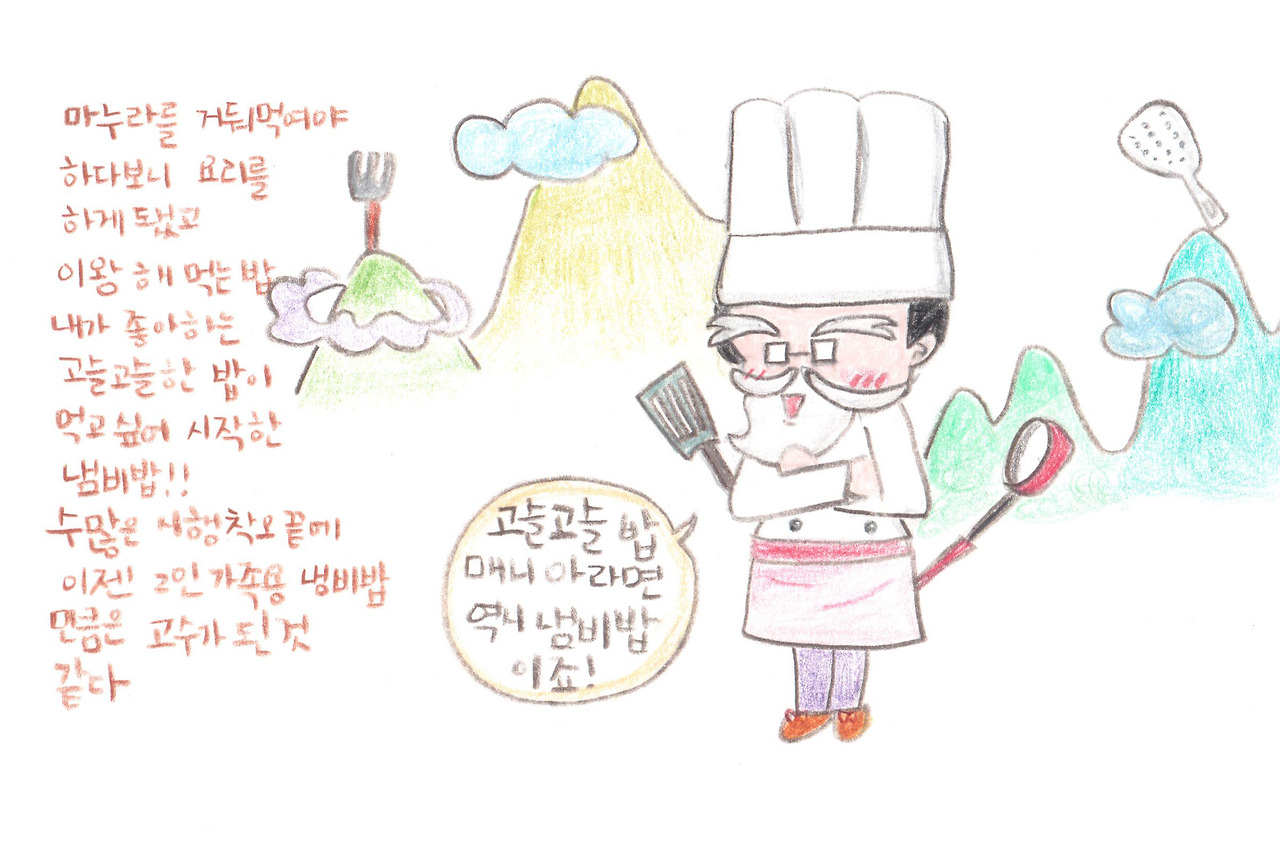 마누라를 거둬먹여야
하다보니 요리를
하게 됐고
이왕 해 먹는 밥
내가 좋아하는
고들고들한 밥이
먹고 싶어 시작한
냄비밥!!
수많은 시행착오 끝에
이젠! 2인 가족용 냄비밥
만큼은 고수가 된 것
같다
고들고들 밥
매니아라면
역시 냄비밥
이죠!